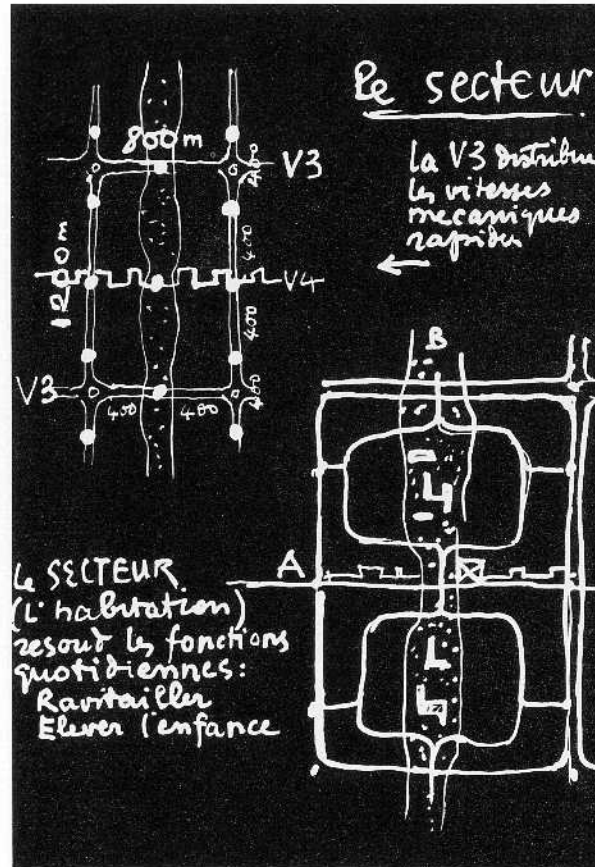 Le secteur
la V3 distribue
les vitesses
mecaniques
rapides
800 m
V3
400
1200 m
400
V4
400
V3
400
400
400
B
A
Le SECTEUR
(L'habitation)
resout les fonctions
quotidiennes:
Ravitailler
Elever l'enfance